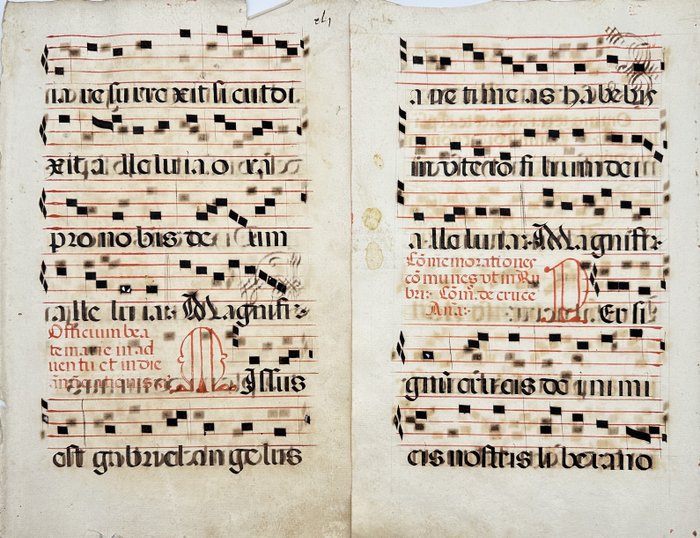 ia resurrexit sicut di
xit alleluia. ora
pro nobis deum
alleluia. Magnifi.
Officium bea
te marie in ad
ventu et in die
Missus
est gabriel angelus
ave timeas habebis
in utero filium dei
alleluia. Magnifi.
Cōmemorationes
cōmunes ut in Ru
bri. Cōm. de cruce
Ana.
Per si
gnum crucis de inimi
cis nostris libera no